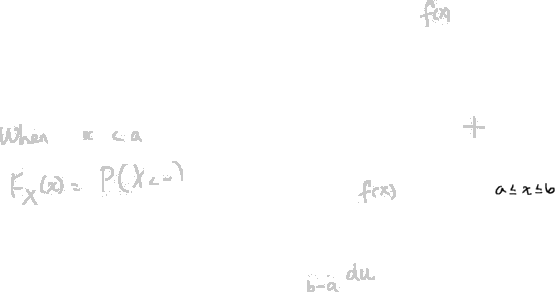 f(x)
+
When x < a
F_X(x) = P(X <
f(x) a ≤ x ≤ b
b-a du